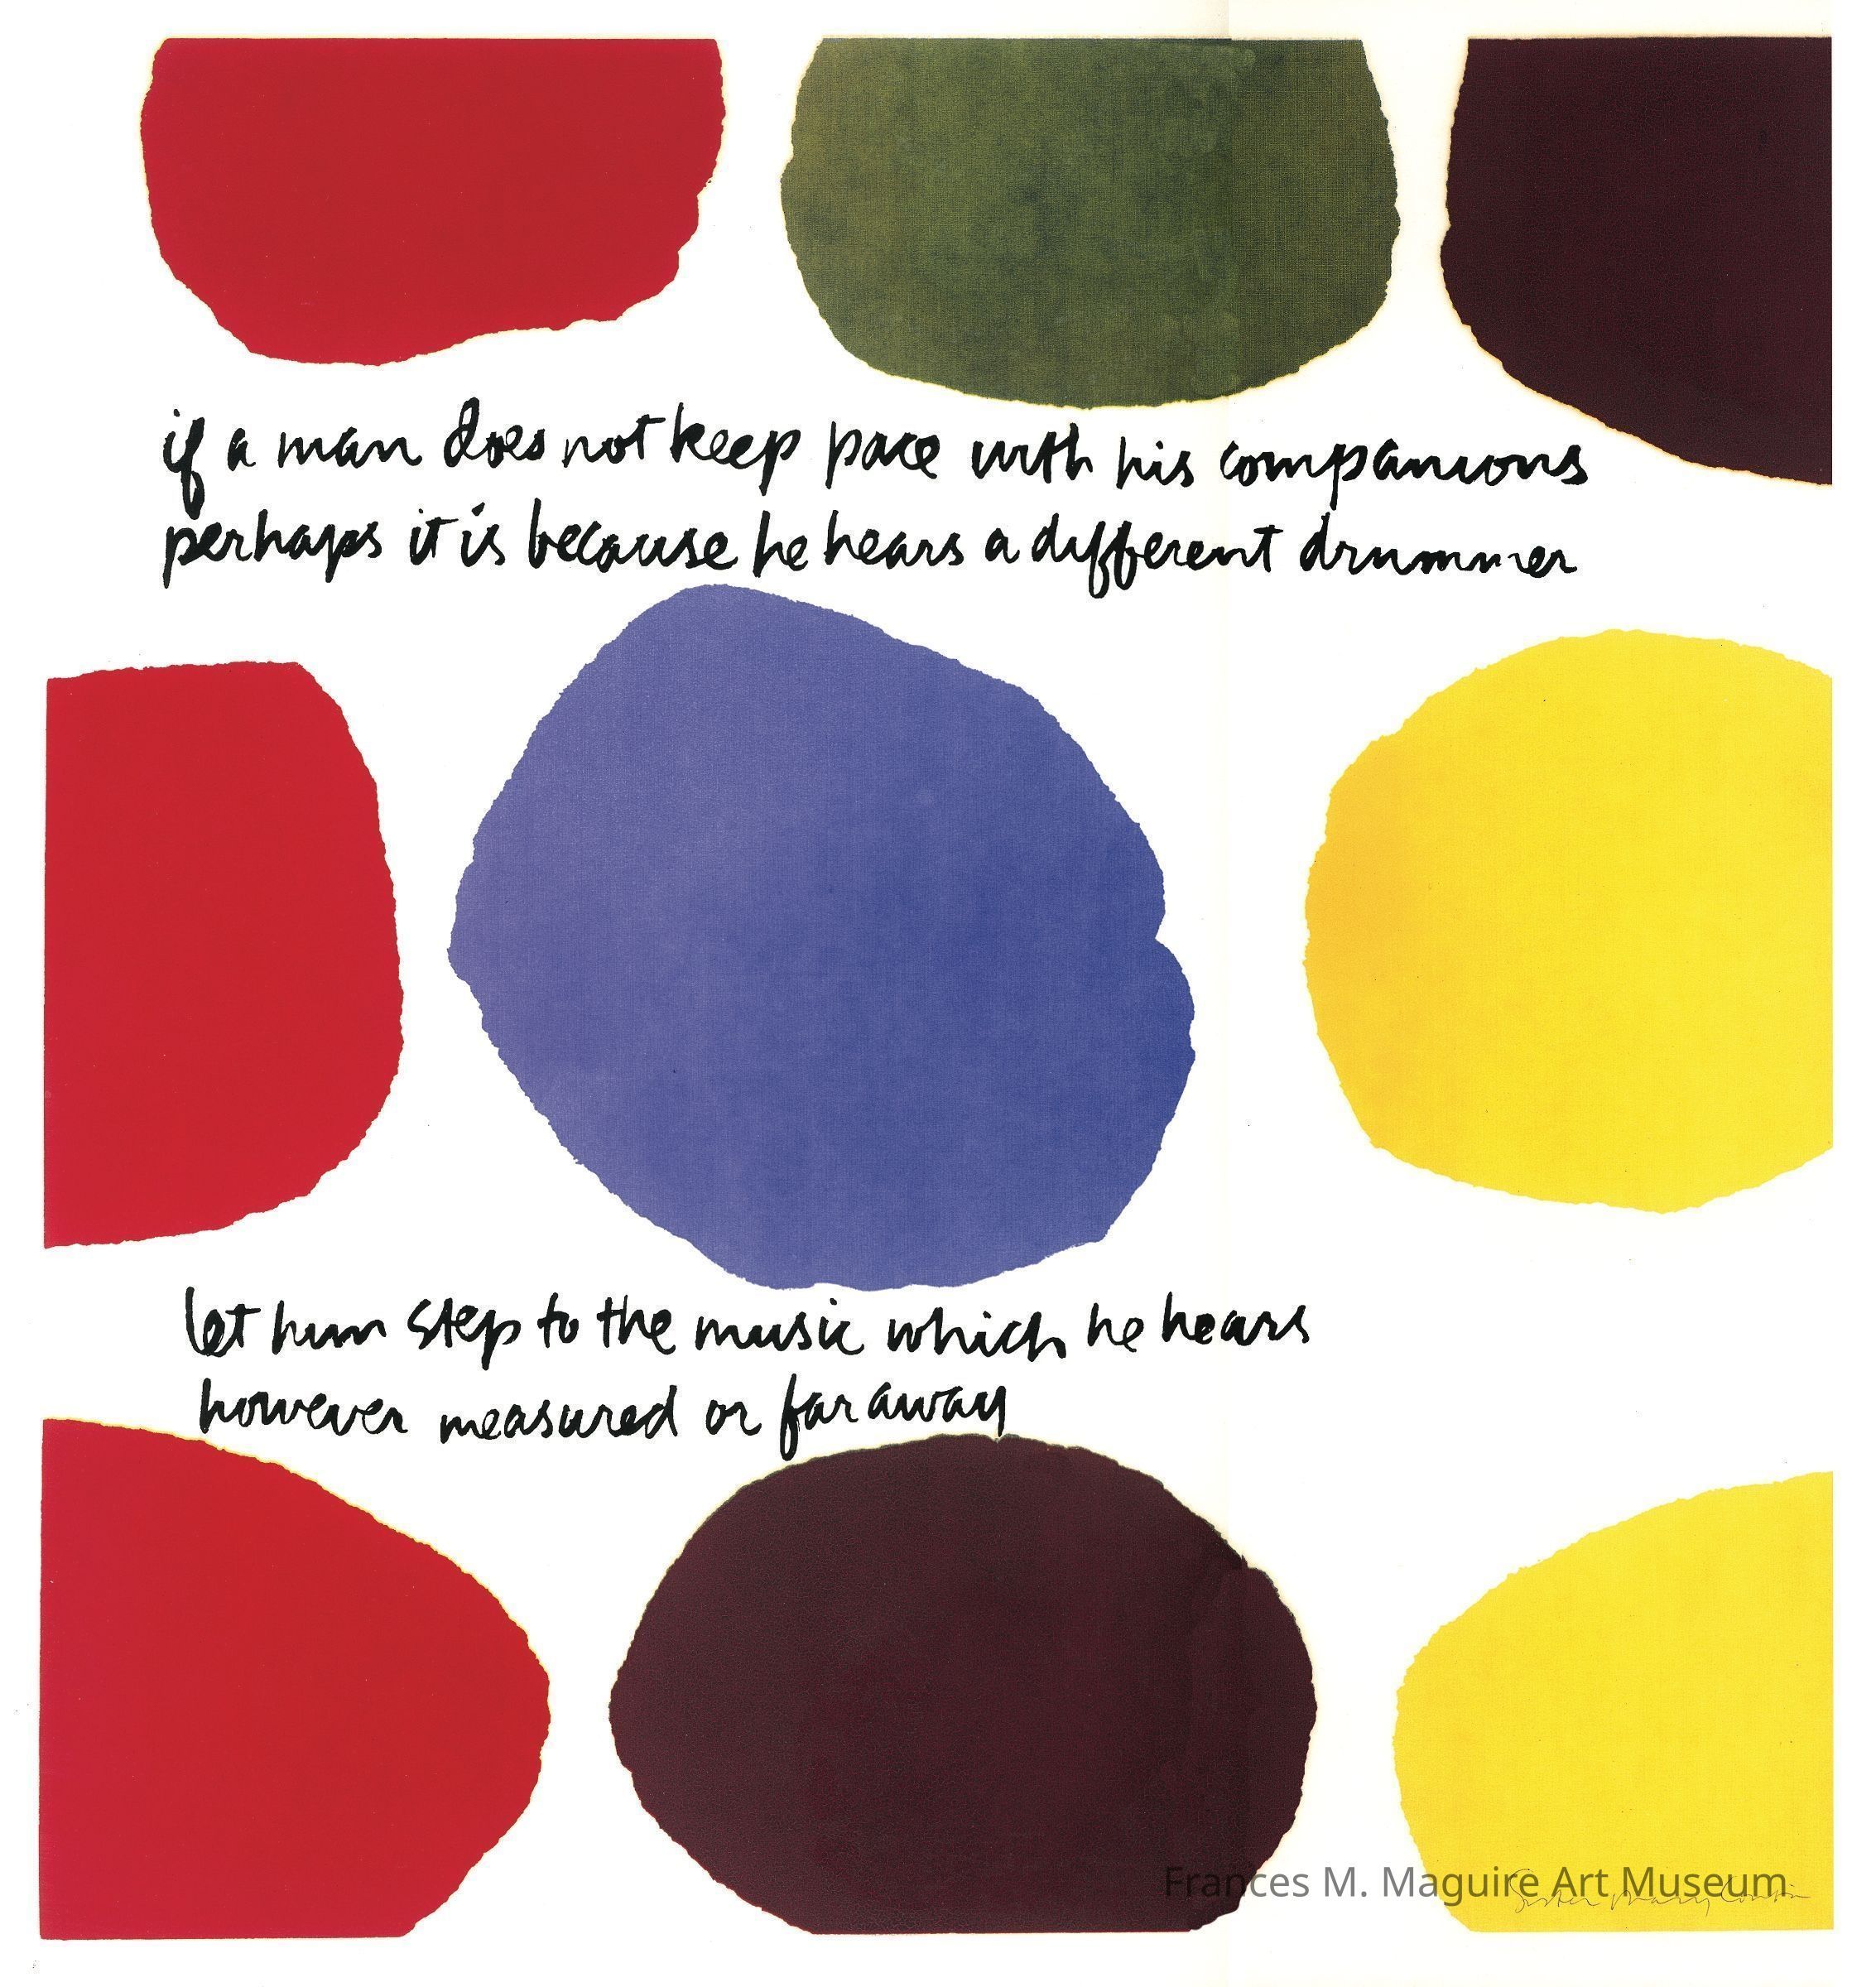 if a man does not keep pace with his companions
perhaps it is because he hears a different drummer
let him step to the music which he hears
however measured or far away
Frances M. Maguire Art Museum
Sister Mary Corita